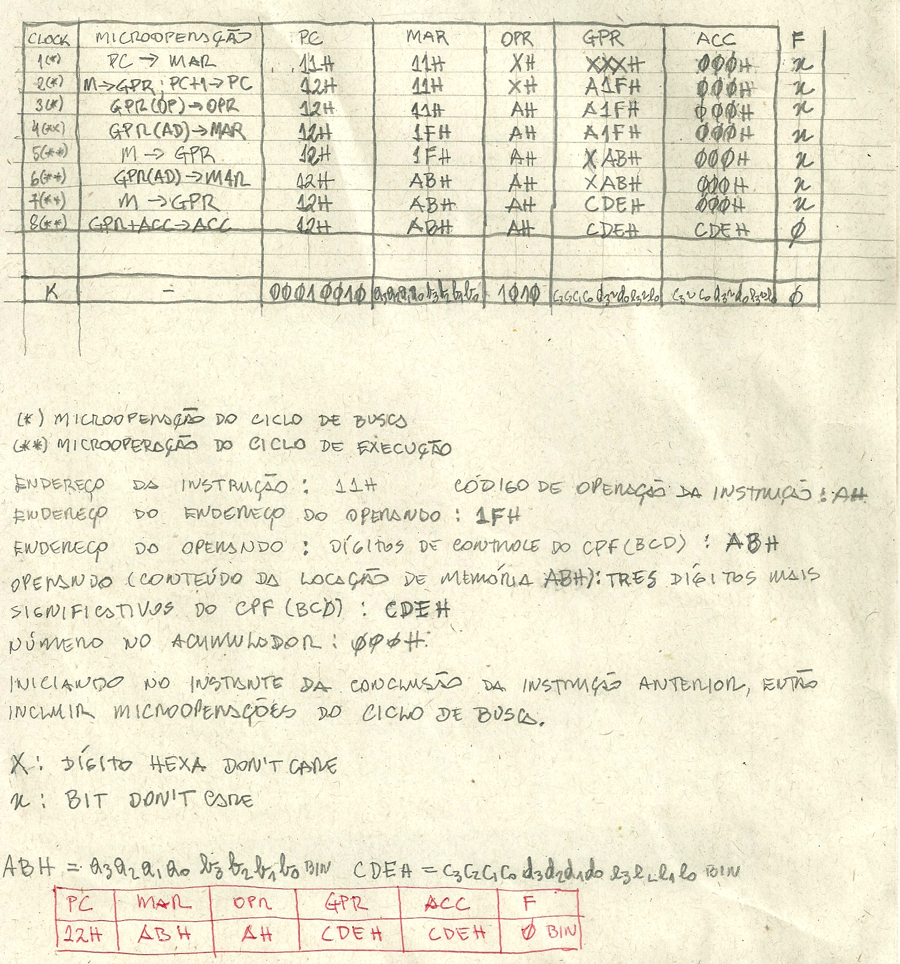 CLOCK MICROOPERAÇÃO PC MAR OPR GPR ACC F
1(*) PC → MAR 11H 11H XH XXXH ØØØH x
2(*) M→GPR; PC+1→PC 12H 11H XH A1FH ØØØH x
3(*) GPR(OP)→OPR 12H 11H AH A1FH ØØØH x
4(**) GPR(AD)→MAR 12H 1FH AH A1FH ØØØH x
5(**) M → GPR 12H 1FH AH XABH ØØØH x
6(**) GPR(AD)→MAR 12H ABH AH XABH ØØØH x
7(**) M → GPR 12H ABH AH CDEH ØØØH x
8(**) GPR+ACC→ACC 12H ABH AH CDEH CDEH Ø
K - ØØØ1ØØ1Ø a3a2a1a0b3b2b1b0 1Ø1Ø Ø
(*) MICROOPERAÇÃO DO CICLO DE BUSCA
(**) MICROOPERAÇÃO DO CICLO DE EXECUÇÃO
ENDEREÇO DA INSTRUÇÃO : 11H CÓDIGO DE OPERAÇÃO DA INSTRUÇÃO : AH
ENDEREÇO DO ENDEREÇO DO OPERANDO : 1FH
ENDEREÇO DO OPERANDO : DÍGITOS DE CONTROLE DO CPF (BCD) : ABH
OPERANDO (CONTEÚDO DA LOCAÇÃO DE MEMÓRIA ABH): TRES DÍGITOS MAIS
SIGNIFICATIVOS DO CPF (BCD) : CDEH
NÚMERO NO ACUMULADOR : ØØØH.
INICIANDO NO INSTANTE DA CONCLUSÃO DA INSTRUÇÃO ANTERIOR, ENTÃO
INCLUIR MICROOPERAÇÕES DO CICLO DE BUSCA.
X : DÍGITO HEXA DON'T CARE
x : BIT DON'T CARE
ABH = a3a2a1a0 b3b2b1b0 BIN CDEH = c3c2c1c0 d3d2d1d0 e3e2e1e0 BIN
PC MAR OPR GPR ACC F
12H ABH AH CDEH CDEH Ø BIN